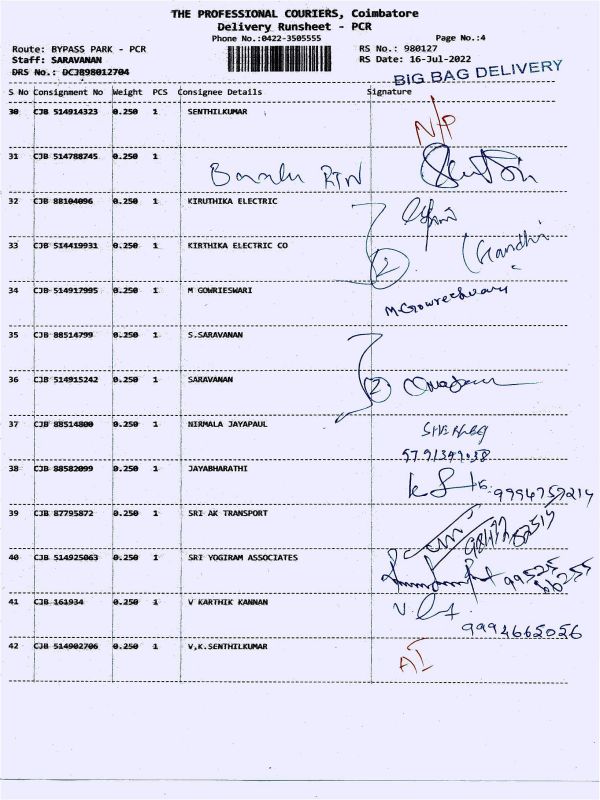 THE PROFESSIONAL COURIERS, Coimbatore
Delivery Runsheet - PCR
Phone No.:0422-3505555
Page No.:4
Route: BYPASS PARK - PCR
RS No.: 980127
Staff: SARAVANAN
RS Date: 16-Jul-2022
DRS No.: DCJB98012704
BIG BAG DELIVERY
S No Consignment No Weight PCS Consignee Details Signature
30 CJB 514914323 0.250 1 SENTHILKUMAR N/P
31 CJB 514788745 0.250 1
32 CJB 88104096 0.250 1 KIRUTHIKA ELECTRIC
33 CJB 514419931 0.250 1 KIRTHIKA ELECTRIC CO 2 Gandhi
34 CJB 514917995 0.250 1 M GOWRIESWARI
35 CJB 88514799 0.250 1 S.SARAVANAN
36 CJB 514915242 0.250 1 SARAVANAN 2
37 CJB 88514800 0.250 1 NIRMALA JAYAPAUL
38 CJB 88582099 0.250 1 JAYABHARATHI
9994759214
39 CJB 87795872 0.250 1 SRI AK TRANSPORT
40 CJB 514925063 0.250 1 SRI YOGIRAM ASSOCIATES
41 CJB 161934 0.250 1 V KARTHIK KANNAN
9994665056
42 CJB 514902706 0.250 1 V,K.SENTHILKUMAR AI